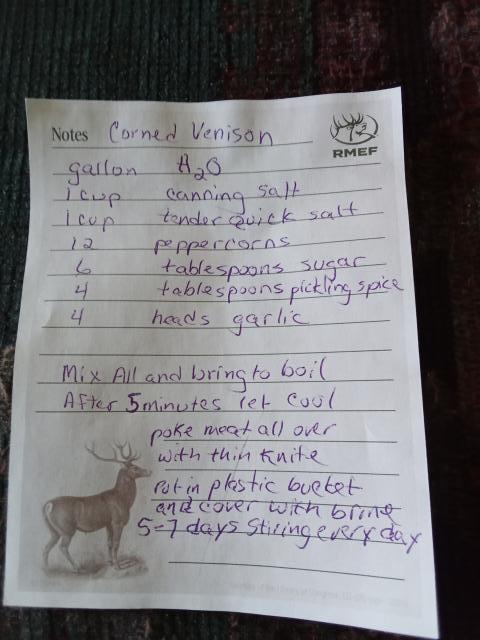 Notes Corned Venison
RMEF
gallon H₂O
1 cup canning salt
1 cup tender quick salt
12 peppercorns
6 tablespoons sugar
4 tablespoons pickling spice
4 heads garlic
Mix All and bring to boil
After 5 minutes let cool
poke meat all over
with thin knife
Put in plastic bucket
and cover with brine
5-7 days Stiring every day